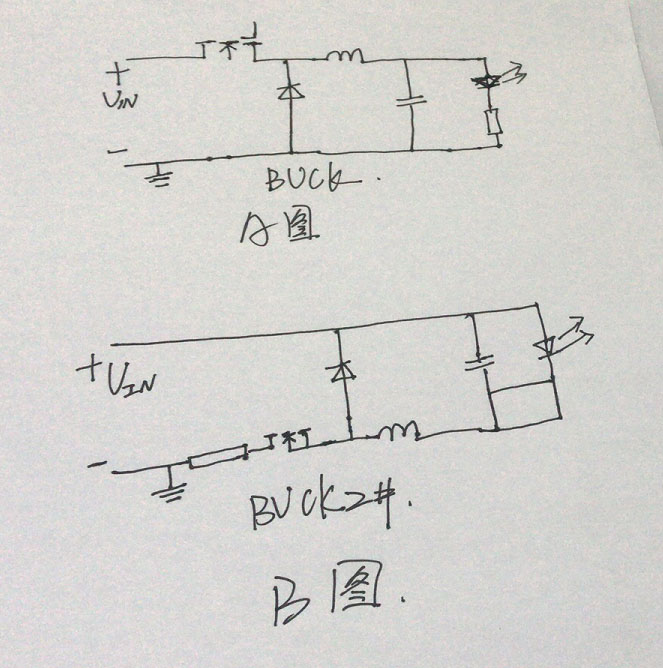 +
VIN
-
BUCK.
A图
+VIN
-
BUCK2#.
B图.